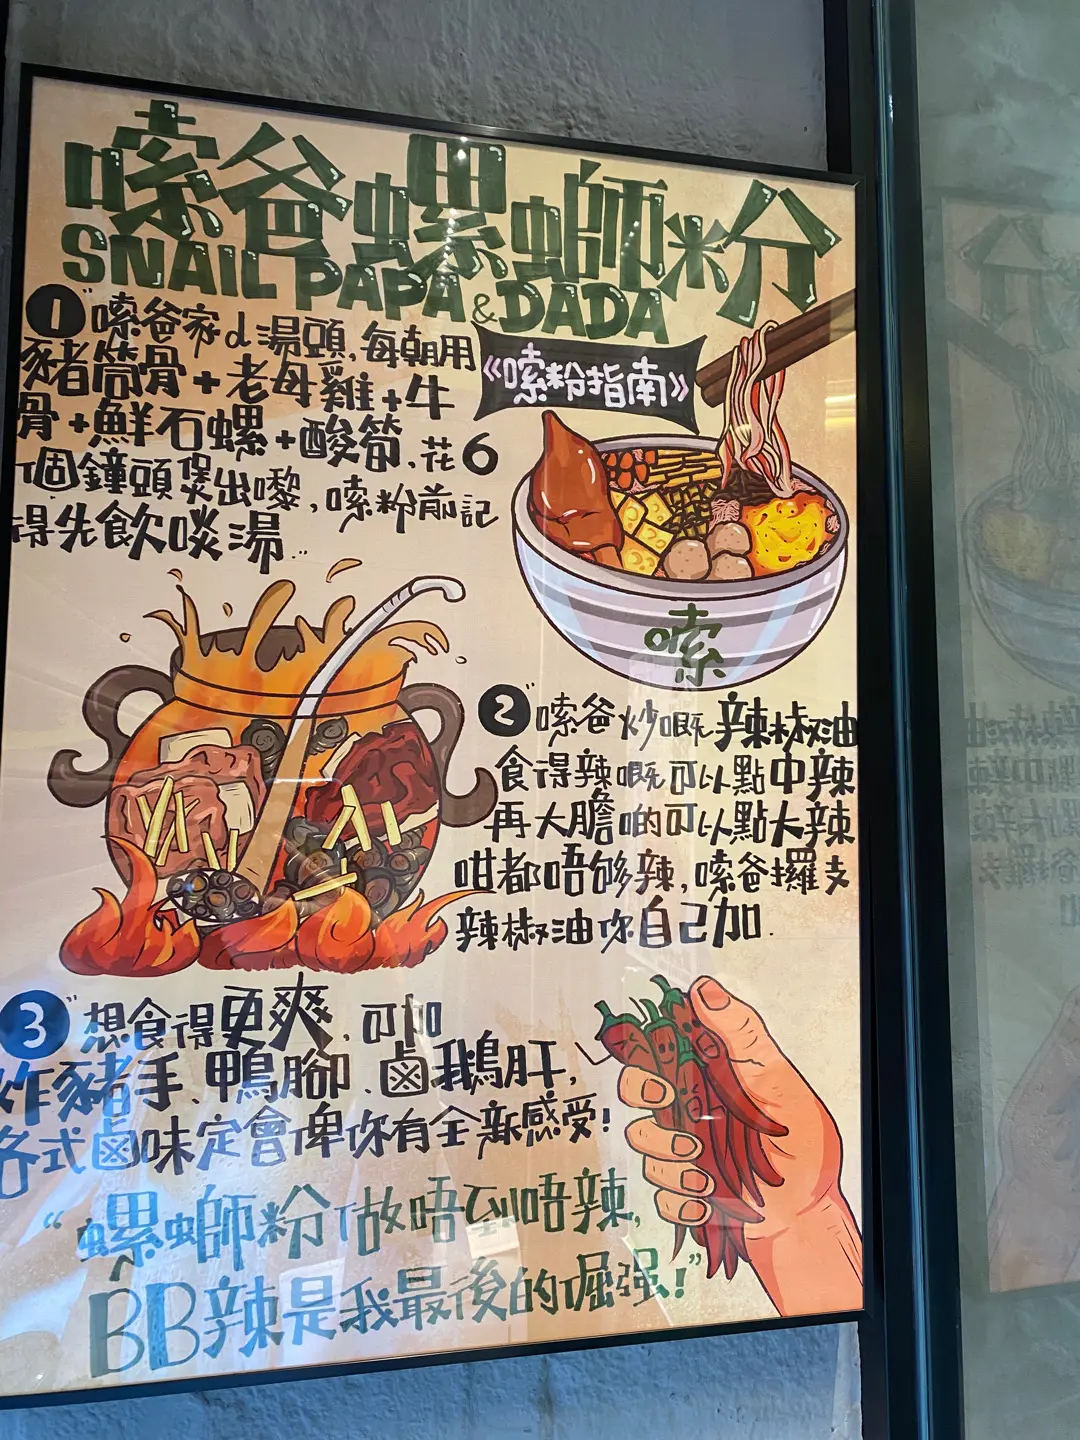 嗦爸螺螄粉
SNAIL PAPA & DADA
《嗦粉指南》
1 "嗦爸家d湯頭,每朝用
豬筒骨+老母雞+牛
骨+鮮石螺+酸筍,花6
個鐘頭煲出嚟,嗦粉前記
得先飲啖湯..
嗦
2 "嗦爸炒嘅辣椒油
食得辣嘅可以點中辣
再大膽啲可以點大辣
咁都唔够辣,嗦爸攞支
辣椒油你自己加.
3 "想食得更爽,可加
炸豬手、鴨腳、鹵鵝肝,
各式鹵味定會俾你有全新感受!
"螺螄粉做唔到唔辣,
BB辣是我最後的倔强!"